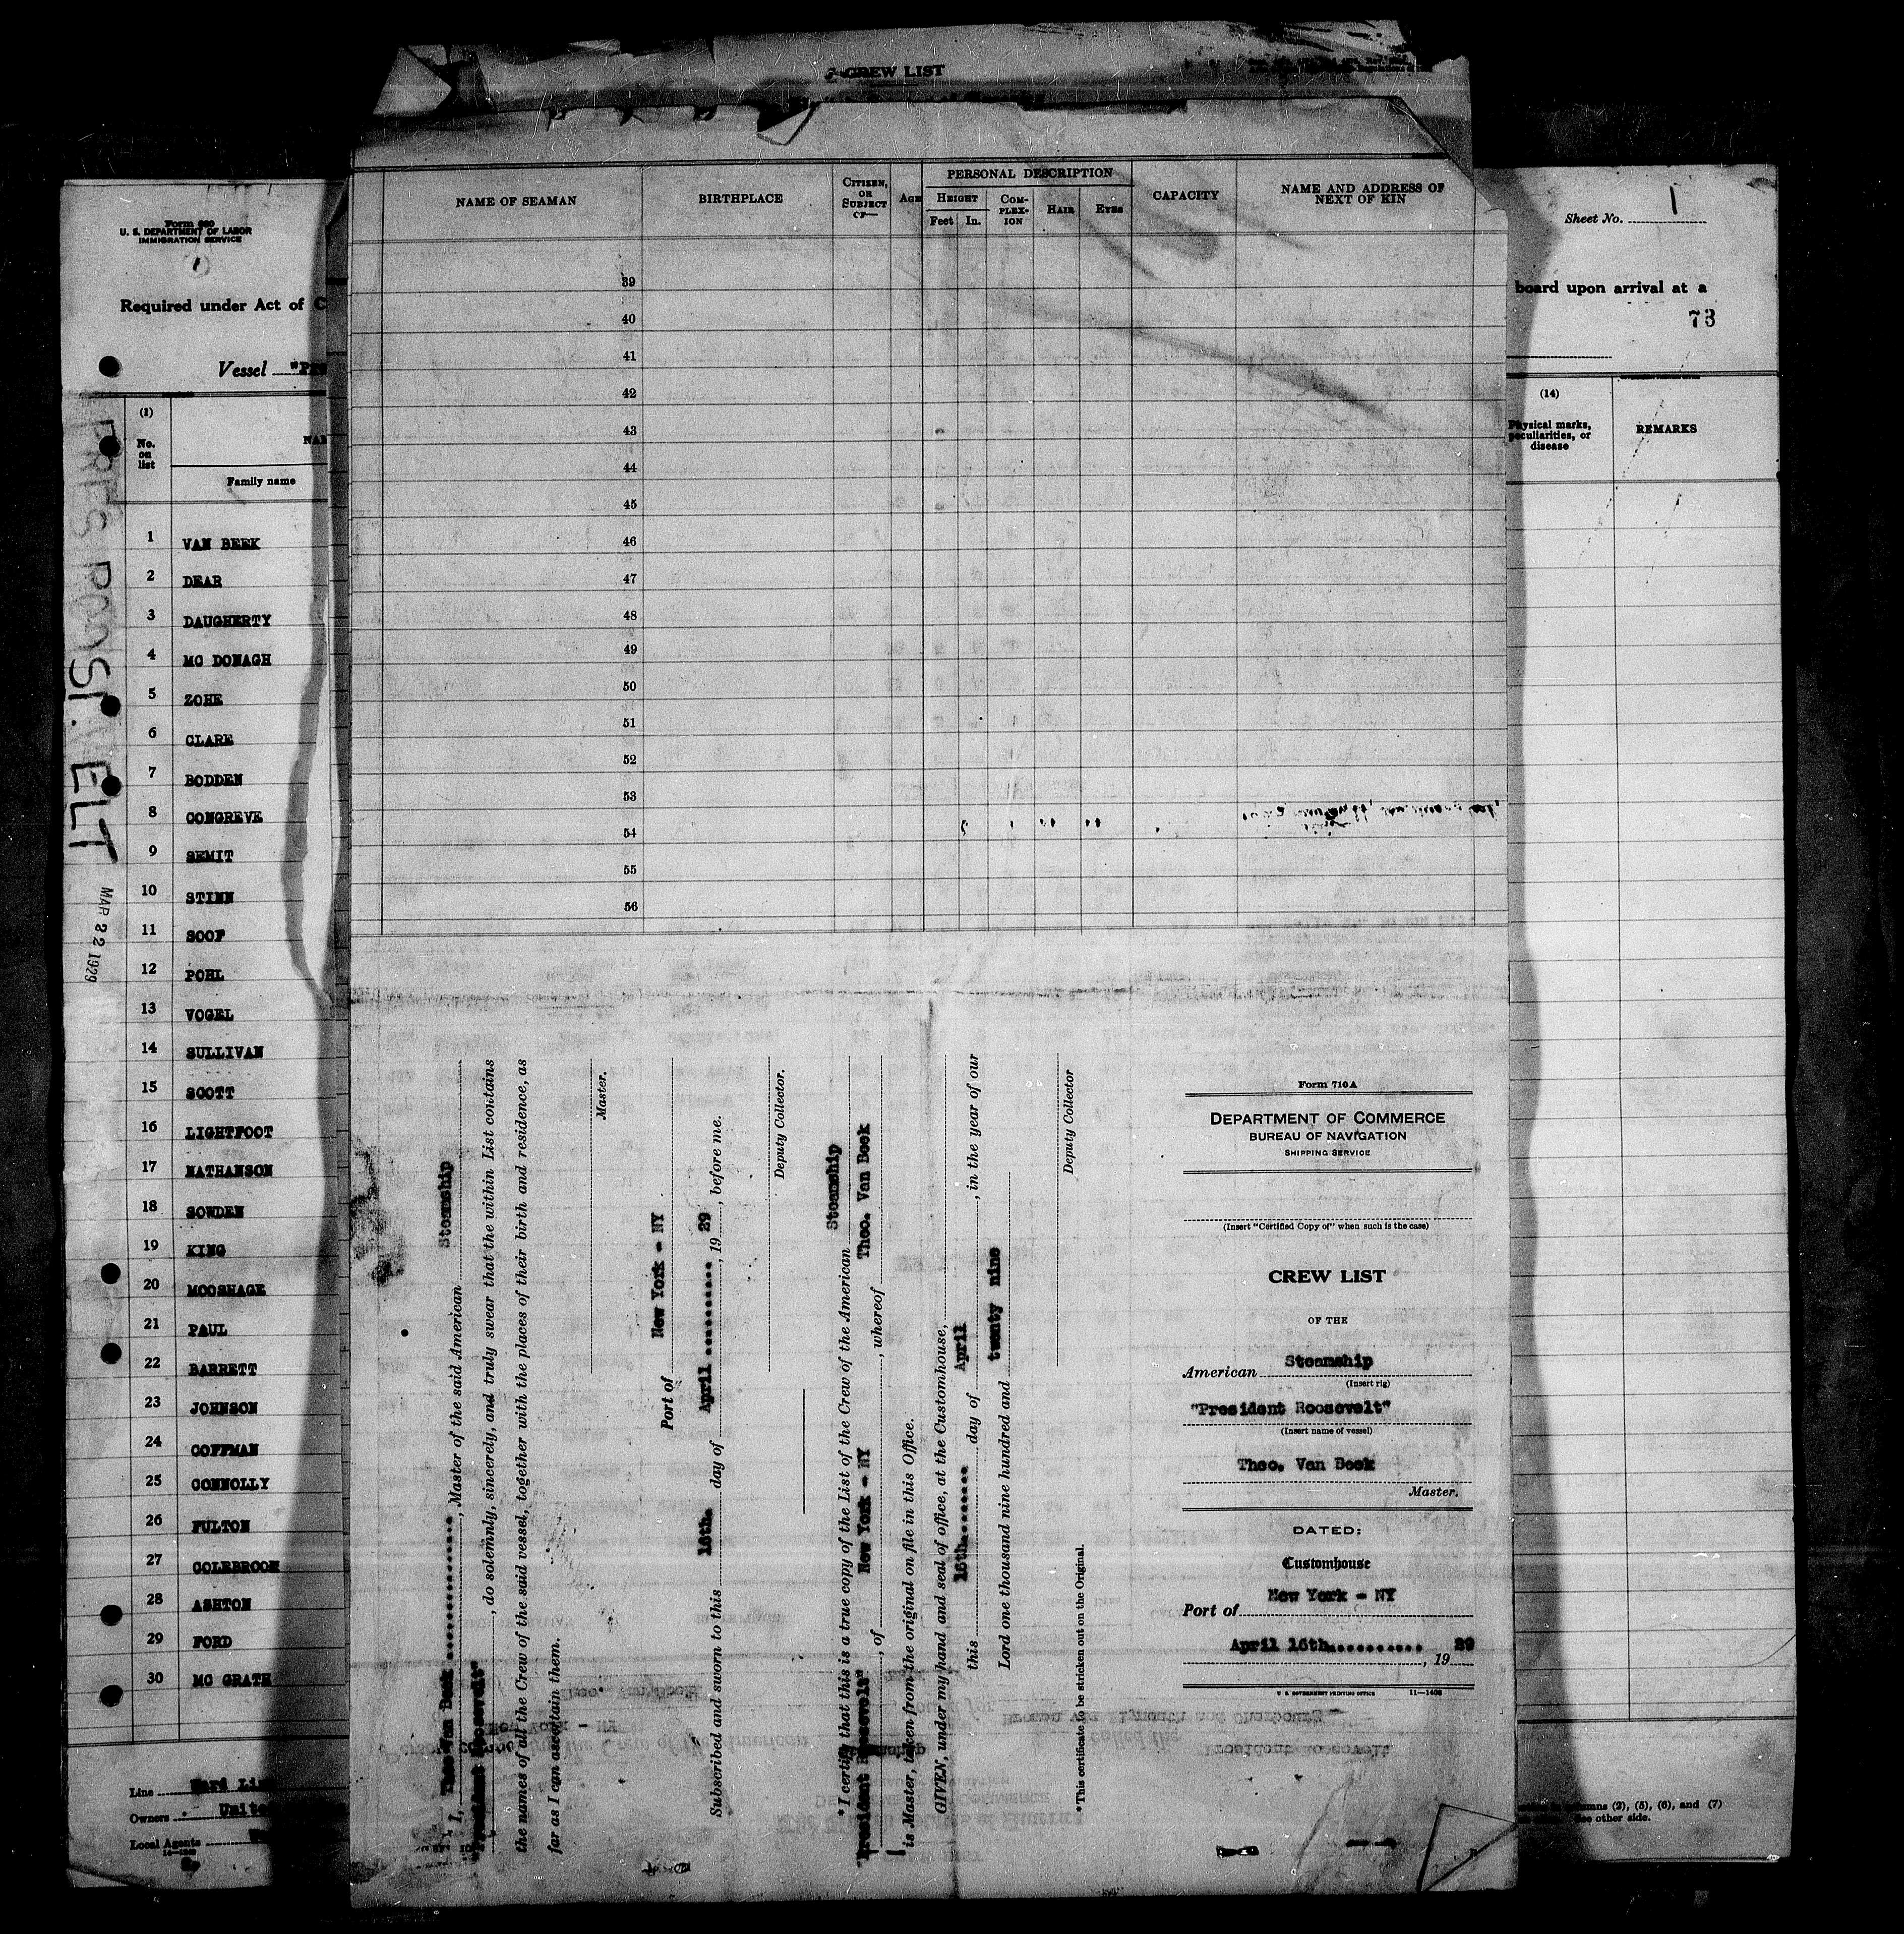 CREW LIST
NAME OF SEAMAN
BIRTHPLACE
CITIZEN, OR SUBJECT OF—
AGE
PERSONAL DESCRIPTION
HEIGHT
Feet
In.
COM-PLEX-ION
HAIR
EYES
CAPACITY
NAME AND ADDRESS OF NEXT OF KIN
39
40
41
42
43
44
45
46
47
48
49
50
51
52
53
54
55
56
Form 680
U. S. DEPARTMENT OF LABOR
IMMIGRATION SERVICE
Required under Act of C
Vessel "PRE
(1)
No. on list
NAM
Family name
1 VAN BEEK
2 DEAR
3 DAUGHERTY
4 MC DONAGH
5 ZOHE
6 CLARE
7 BODDEN
8 CONGREVE
9 SEMIT
10 STINN
11 SOOF
12 POHL
13 VOGEL
14 SULLIVAN
15 SCOTT
16 LIGHTFOOT
17 NATHANSON
18 SOWDEN
19 KING
20 MOOSHAGE
21 PAUL
22 BARRETT
23 JOHNSON
24 COFFMAN
25 CONNOLLY
26 FULTON
27 COLEBROOK
28 ASHTON
29 FORD
30 MC GRATH
Line
Owners Unite
Local Agents
PRES ROOSEVELT
MAR 22 1929
Sheet No. 1
board upon arrival at a
73
(14)
Physical marks, peculiarities, or disease
REMARKS
columns (2), (5), (6), and (7)
See other side.
I, Theo Van Beek, Master of the said American Steamship
"President Roosevelt", do solemnly, sincerely, and truly swear that the within List contains
the names of all the Crew of the said vessel, together with the places of their birth and residence, as
far as I can ascertain them.
Master.
Port of New York - NY
Subscribed and sworn to this 16th. day of April, 19 29, before me.
Deputy Collector.
*I certify that this is a true copy of the List of the Crew of the American Steamship
"President Roosevelt", of New York - NY, whereof Theo. Van Beek
is Master, taken from the original on file in this Office.
GIVEN, under my hand and seal of office, at the Customhouse,
this 16th day of April, in the year of our
Lord one thousand nine hundred and twenty nine
Deputy Collector
*This certificate to be stricken out on the Original.
Form 710 A
DEPARTMENT OF COMMERCE
BUREAU OF NAVIGATION
SHIPPING SERVICE
(Insert "Certified Copy of" when such is the case)
CREW LIST
OF THE
American Steamship
(Insert rig)
"President Roosevelt"
(Insert name of vessel)
Theo. Van Beek
Master.
DATED:
Customhouse
Port of New York - NY
April 16th., 19 29
U. S. GOVERNMENT PRINTING OFFICE 11—1408